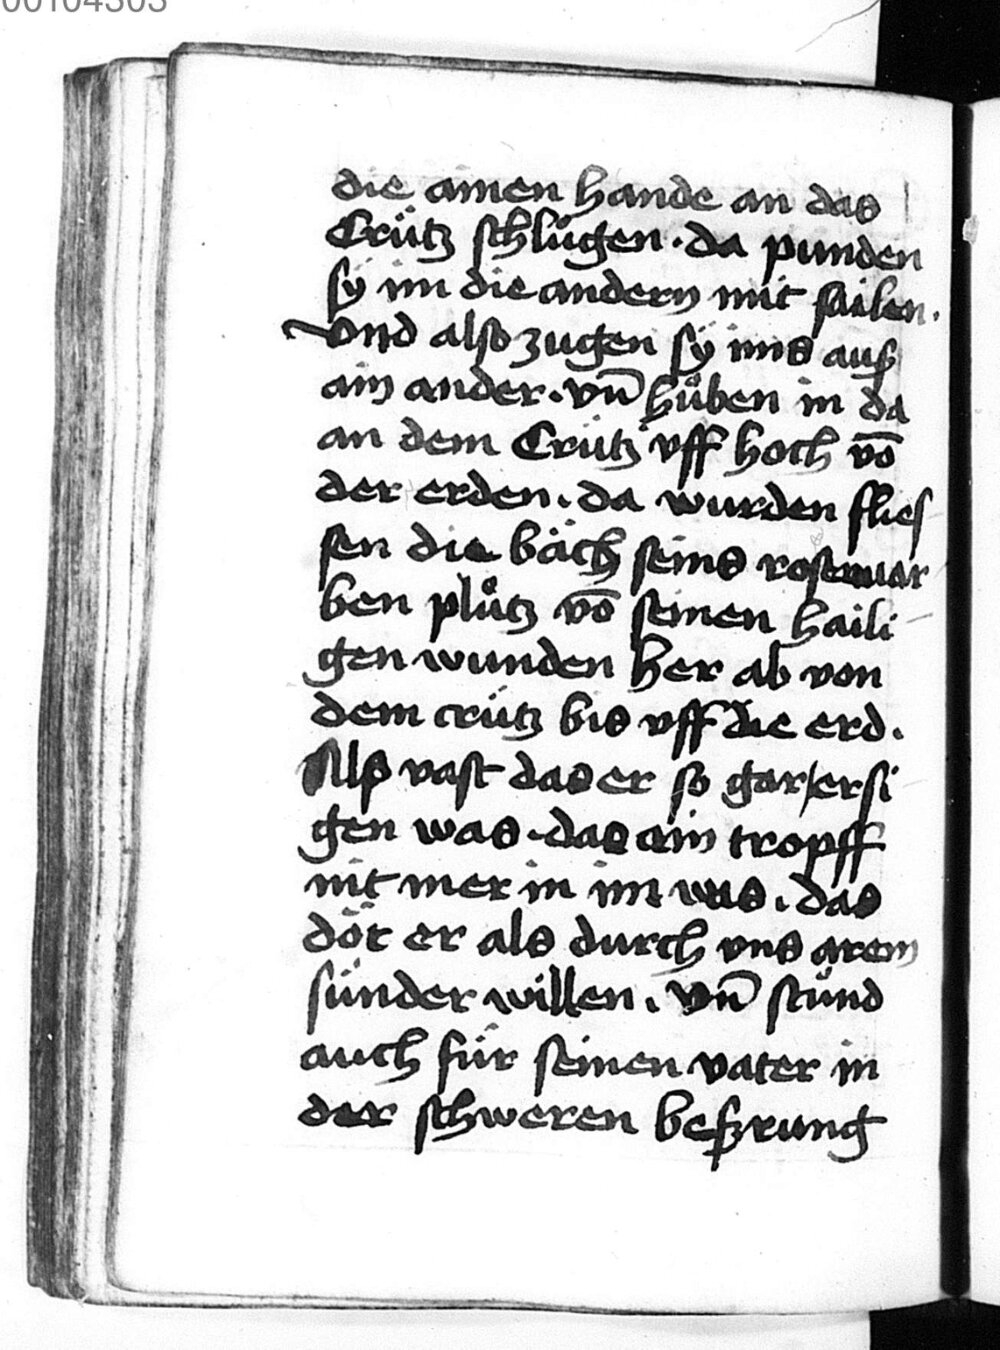 00104303
die ainen hande an das
Crütz schlůgen · da punden
sy im die andern mit sailen ·
vnd also zugen sy ims auß
ain ander · vn̄ hůben in da
an dem Crütz vff hoch vō
der erden · da wurden flies
sen die bäch seins rosenuar
ben plůtz vō seinen haili
gen wunden her ab von
dem crütz bis vff die erd ·
Alß vast das er so gar ersi
gen was · das ain tropff
nit mer in im was · das
dőt er als durch vns arem
sünder willen · vn̄ stůnd
auch für seinen vater in
der schweren beßrung